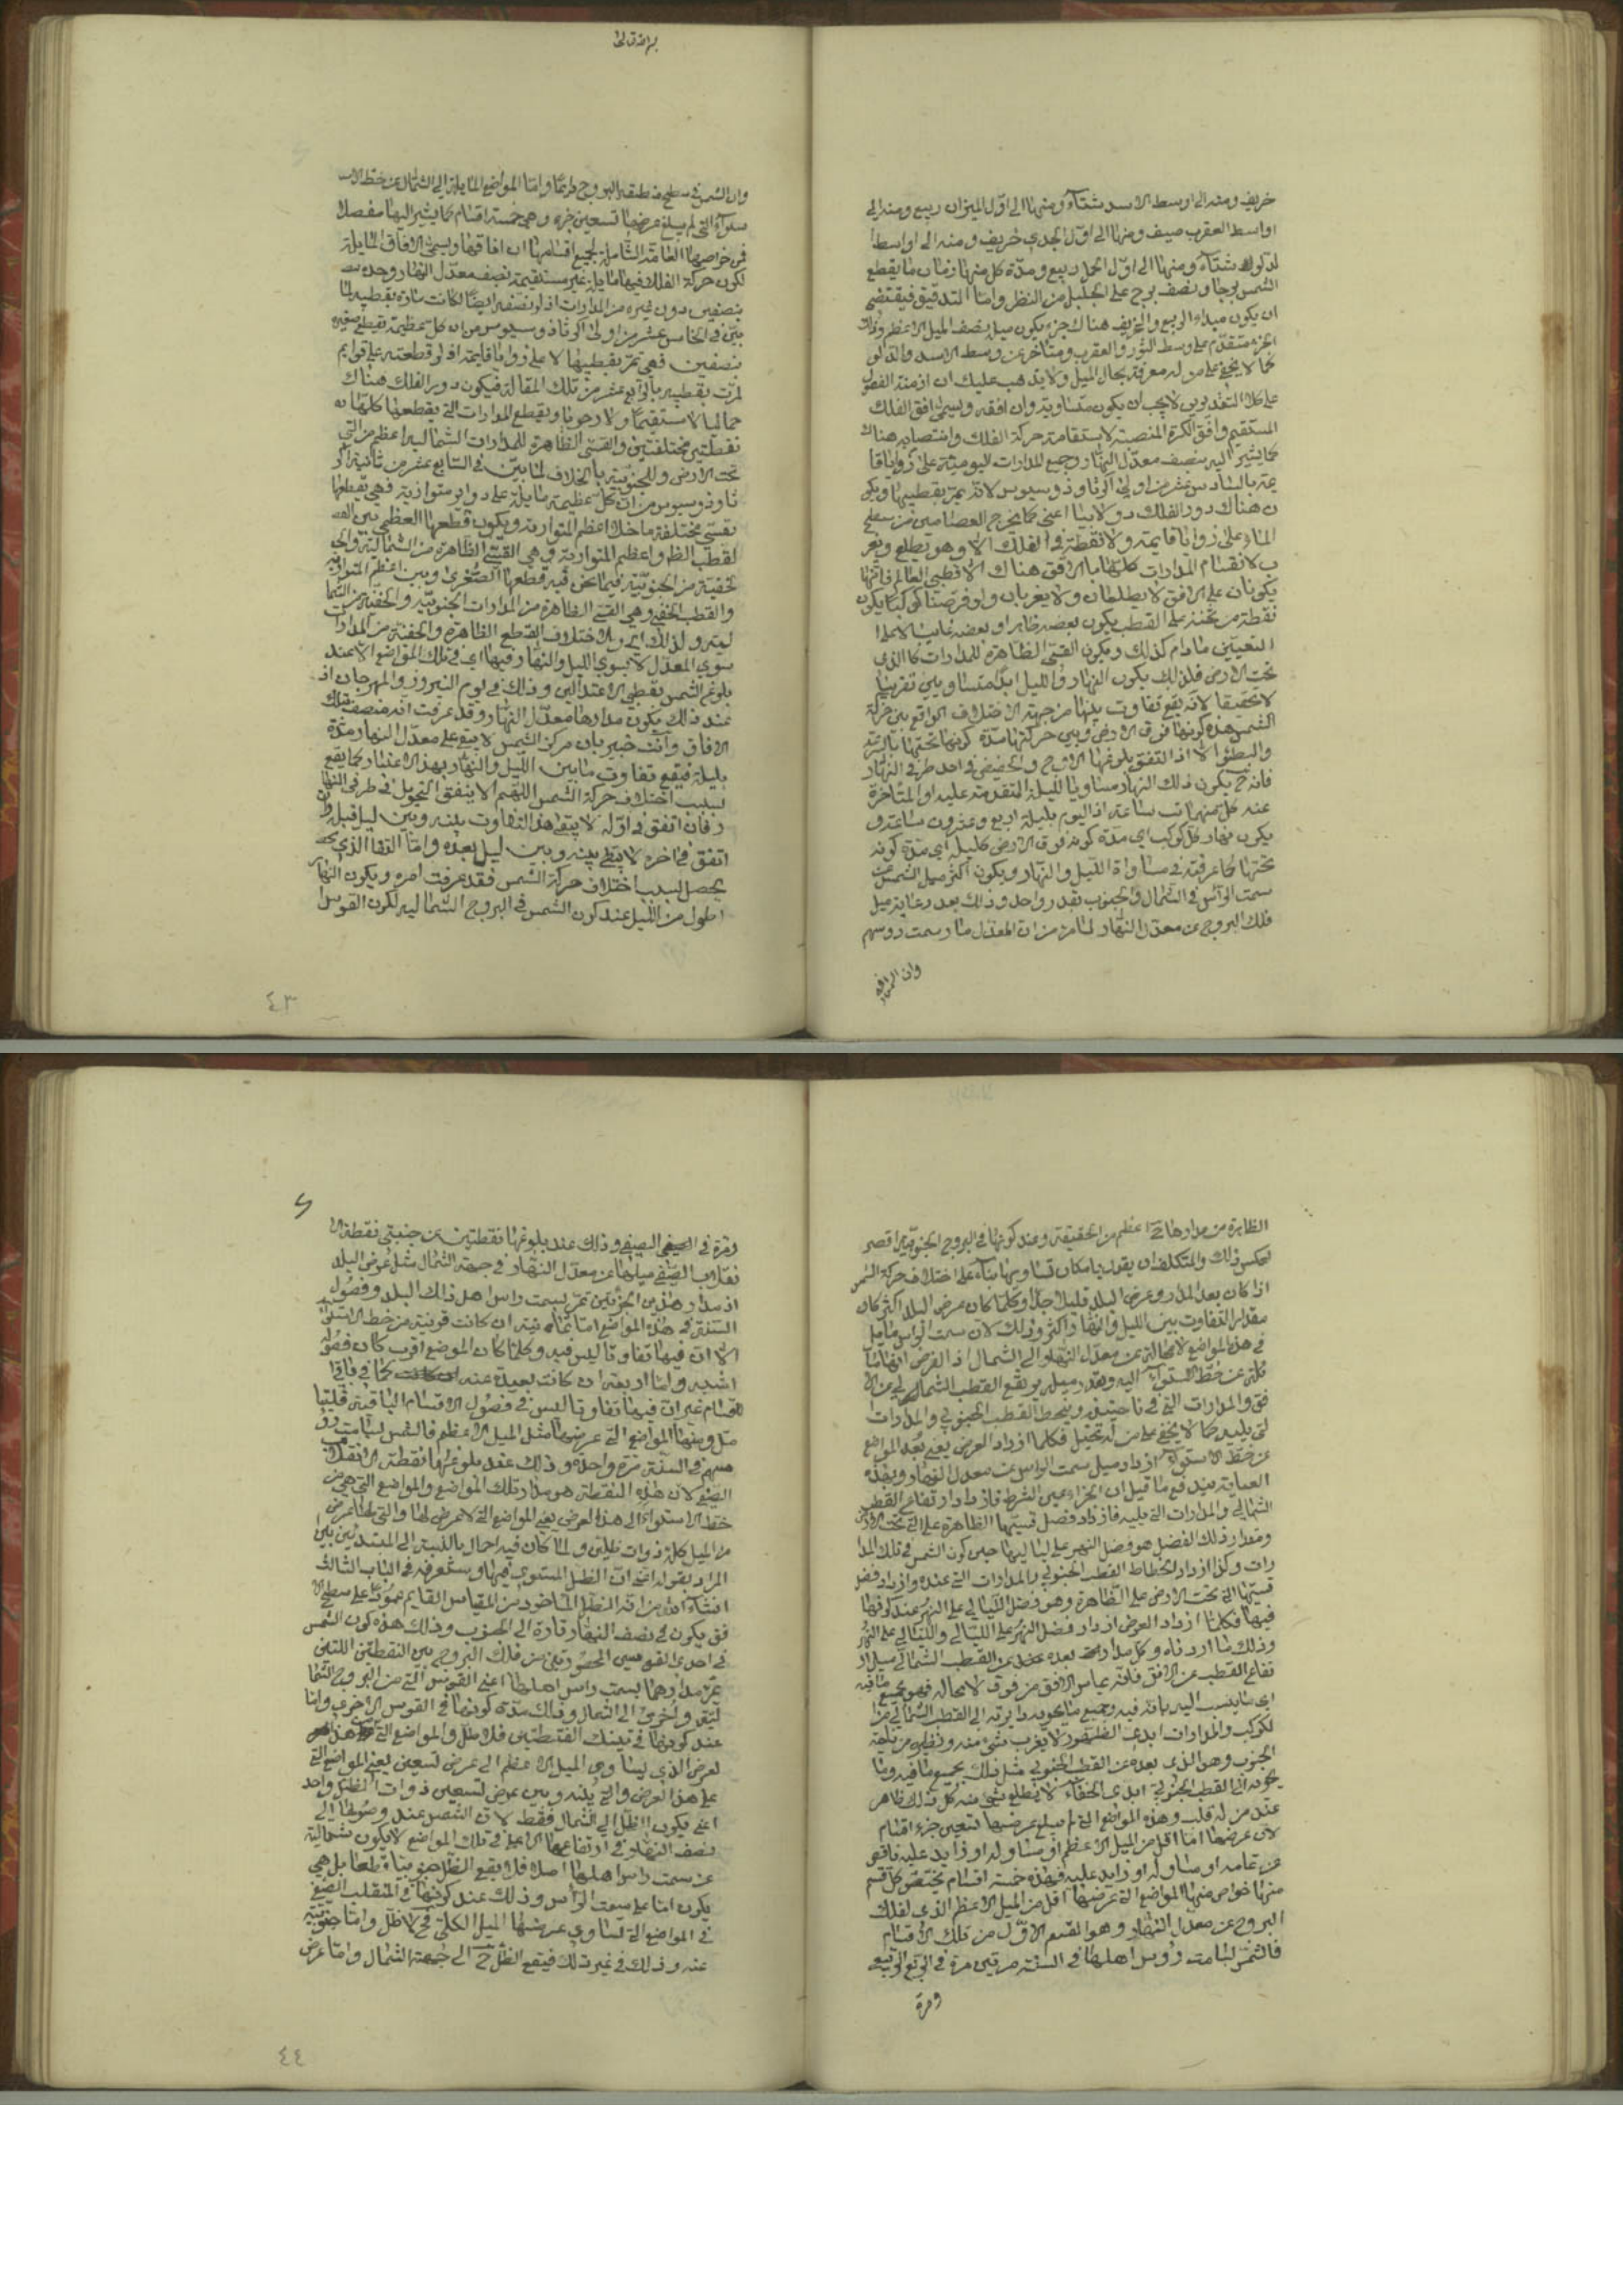 خريف ومنه الى اوسط الاسد شتاء ومنها الى اول الميزان ربيع ومنه الى
اواسط العقرب صيف ومنها الى اول الجدى خريف ومنه الى اواسط ا
لدلو شتاء ومنها الى اول الحمل ربيع ومدة كل منها زمان ما يقطع
الشمس برجا ونصف برج على الجليل من النظر واما التدقيق فيقتضى
ان يكون مبداء الربيع والخريف هناك جزء يكون ميله نصف الميل الاعظم وذلك
الجزء متقدم على وسط الثور والعقرب ومتأخر عن وسط الاسد والدلو
كما لا يخفى على من له معرفة بحال الميل ولا يذهب عليك ان ازمنة الفصول
على كلا التقديرين لا يجب ان يكون متساوية وان افقه ويسمى افق الفلك
المستقيم وافق الكرة المنتصبة لاستقامة حركة الفلك وانتصابه هناك
كما يشير اليه ينصف معدل النهار وجميع المدارات اليومية على زوايا قا
يمة بالسادس عشر من اولى اكر ثاوذوسيوس لانه يمر بقطبيها ويكو
ن هناك دور الفلك دولابيا اعنى كما يخرج العصامير من سطح
الماء على زوايا قايمة ولا نقطة فى الفلك الا وهو يطلع ويغر
ب لانقسام المدارات كلها بالافق هناك الا قطبى العالم فانهما
يكونان على الافق لا يطلعان ولا يغربان ولو فرضنا كوكبا يكون
نقطة من ثخنه على القطب يكون بعضه ظاهرا وبعضه غايبا لا على ا
لتعيين ما دام كذلك ويكون القسى الظاهرة للمدارات كالتى
تحت الارض فلذلك يكون النهار والليل ابدا متساويين تقريبا
لا تحقيقا لانه يقع تفاوت بينهما من جهة الاختلاف الواقع بين حركة
الشمس مدة كونها فوق الارض وبين حركتها مدة كونها تحتها بالسرعة
والبطؤ الا اذا اتفق بلوغها الاوج والحضيض فى احد طرفى النهار
فانه ح يكون ذلك النهار مساويا لليلة المتقدمة عليه او المتأخرة
عنه كل منهما ساعة اذ اليوم بليلة اربع وعشرون ساعة و
يكون نهار كل كوكب اى مدة كونه فوق الارض كليله اى مدة كونه
تحتها كما عرفته فى مساواة الليل والنهار ويكون اكثر ميل الشمس عن
سمت الرأس فى الشمال والجنوب بقدر واحد وذلك بعد رعاية ميل
فلك البروج عن معدل النهار لما مر من ان المعدل مار بسمت رؤسهم
وان الشمس
وان الشمس فى سطح منطقة البروج دايما واما المواضع المايلة الى الشمال عن خط الاست
سواء التى لم يبلغ عرضها تسعين جزء وهى خمسة اقسام كما يشير اليها مفصلا
فمن خواصها العامة الشاملة لجميع اقسامها ان افاقها ويسمى الافاق المايلة
لكون حركة الفلك فيها مايلة غير مستقيمة ينصف معدل النهار وحده
بنصفين دون غيره من المدارات اذ لو نصفه ايضا لكانت مارة بقطبيه لما
بين فى الخامس عشر من اولى اكر ثاوذوسيوس من ان كل عظيمة تقطع صغيرة
بنصفين فهى تمر بقطبيها لا على زوايا قايمة اذ لو قطعته على قوايم
لمرت بقطبيه بالرابع عشر من تلك المقالة فيكون دور الفلك هناك
حمائليا لا مستقيما ولا رحويا ويقطع المدارات التى يقطعها كلها
بقطعتين مختلفتين والقسى الظاهرة للمدارات الشمالية اعظم من التى
تحت الارض وللجنوبية بالخلاف لما بين فى التاسع عشر من ثانية اكر
ثاوذوسيوس من ان كل عظيمة مايلة على دواير متوازية فهى يقطعها
بقسى مختلفة ما خلا اعظم المتوازية ويكون قطعها العظمى بين
القطب الظ واعظم المتوازية وهى القسى الظاهرة من الشمالية وال
خفية من الجنوبية فيما نحن فيه قطعها الصغرى وبين اعظم المتوازية
والقطب الخفى وهى القسى الظاهرة من المدارات الجنوبية والخفية من الشما
لية ولذلك اى ولاختلاف القطع الظاهرة والخفية من المدارات
سوى المعدل لا يسوى الليل والنهار فيها اى فى تلك المواضع الا عند
بلوغ الشمس نقطتى الاعتدالين وذلك فى يوم النيروز والمهرجان اذ
عند ذلك يكون مدارها معدل النهار وقد عرفت انه منصف بتلك
الافاق وانت خبير بان مركز الشمس لا يبقى على معدل النهار مدة
بليلة فيقع تفاوت ما بين الليل والنهار بهذا الاعتبار كما يقع
بسبب اختلاف حركة الشمس اللهم الا ينفق التحويل فى طرفى النها
ر فان اتفق فى اوله لا يبقى هذا التفاوت بينه وبين ليل قبله وان
اتفق فى اخره لا يبقى بينه وبين ليل بعده واما التفاوت الذى
يحصل بسبب اختلاف حركة الشمس فقد عرفت امره ويكون النهار
اطول من الليل عند كون الشمس فى البروج الشمالية لكون القوس ا
٤٣
الظاهرة من مدارها ح اعظم من الخفية وعند كونها فى البروج الجنوبية اقصر
لعكس ذلك والمتكلف ان يقول بامكان تساويهما بناء على اختلاف حركة الشمس
اذا كان بعد المدار وعرض البلد قليلا جدا وكلما كان عرض البلد اكثر كان
مقدار التفاوت بين الليل والنهار اكثر وذلك لان سمت الرأس مايل
فى هذه المواضع لا محالة عن معدل النهار الى الشمال اذ الفرض انها ما
ئلة عن خط الاستواء اليه وبقدر ميله يرتفع القطب الشمالى عن الا
فق والمدارات التى فى ناحيته وينحط القطب الجنوبى والمدارات
التى يليه كما لا يخفى على من له تخيل فكلما ازداد العرض يعنى بعد المواضع
عن خط الاستواء ازداد ميل سمت الرأس عن معدل النهار وبهذه
العناية يندفع ما قيل ان الجزاء عين الشرط فازداد ارتفاع القطب
الشمالى والمدارات التى يليه فازداد فضل قسيها الظاهرة على التى تحت الارض
ومقدار ذلك الفضل هو فضل النهر على لياليها حين كون الشمس فى تلك المدا
رات وكذا ازداد انحطاط القطب الجنوبى والمدارات التى عنده وازداد فضل
قسيها التى تحت الارض على الظاهرة وهو فضل الليالى على النهر عند كونها
فيها فكلما ازداد العرض ازداد فضل النهر على الليالى والليالى على النهر
وذلك ما اردناه وكل مدار بعده عن القطب الشمالى مثل ار
تفاع القطب عن الافق فانه يماس الافق من فوق لا محالة فهو بجميع ما فيه
اى ما ينسب اليه بانه فيه وجميع ما يحويه دايرته الى القطب الشمالى من ا
لكواكب والمدارات ابدى الظهور لا يغرب شئ منه ونظيره من ناحية
الجنوب وهو الذى بعده عن القطب الجنوبى مثل ذلك بجميع ما فيه وما
يحويه الى القطب الجنوبى ابدى الخفاء لا يطلع شئ منه كل ذلك ظاهر
عند من له قلب وهذه المواضع التى لم يبلغ عرضها تسعين جزء اقسام
لان عرضها اما اقل من الميل الاعظم او مساو له او زايد عليه ناقص
عن تمامه او مساو له او زايد عليه فهذه خمسة اقسام يختص كل قسم
منها خواص منها المواضع التى عرضها اقل من الميل الاعظم الذى لفلك
البروج عن معدل النهار وهو القسم الاول من تلك الاقسام
فالشمس تسامت رؤس اهلها فى السنة مرتين مرة فى الربع الربيعى
ومرة
ومرة فى الصيفى وذلك عند بلوغها نقطتين عن جنبتى نقطة الا
نقلاب الصيفى ميلهما عن معدل النهار فى جهة الشمال مثل عرض البلد
اذ مدار هذين الجزئين تمر بسمت رأس اهل ذلك البلد وفصول
السنة فى هذه المواضع اما ثمانية ان كانت قريبة من خط الاستواء
الا ان فيها تفاوتا ليس فيه وكلما كان الموضع اقرب كان فصوله
اشبه واما اربعة ان كانت بعيدة عنه كما فى باقى ا
لاقسام غير ان فيها تفاوتا ليس فى فصول الاقسام الباقية فليتا
مل ومنها المواضع التى عرضها مثل الميل الاعظم فالشمس تسامت رؤ
سهم فى السنة مرة واحدة وذلك عند بلوغها نقطة الانقلاب
الصيفى لان هذه النقطة هو مدار تلك المواضع والمواضع التى هى من
خط الاستواء الى هذا العرض يعنى المواضع التى لا عرض لها والتى لها عرض
من الميل كله ذوات ظلين ولما كان فيه اجمال بالنسبة الى المبتدئين بين
المراد بقوله اى ان الظل المستوى فيها وستعرفه فى الباب الثالث
ان شاء الله من انه الظل المأخوذ من المقياس القايم عمودا على سطح الا
فق يكون فى نصف النهار تارة الى الجنوب وذلك مدة كون الشمس
فى احدى القوسين المحصورتين من فلك البروج بين النقطتين اللتين
يمر مدارهما بسمت رأس اهلها اعنى القوس التى من البروج الشما
لية واخرى الى الشمال وذلك مدة كونها فى القوس الاخرى واما
عند كونها فى تينك النقطتين فلا ظل والمواضع التى هذا ا
لعرض الذى يساوى الميل الاعظم الى عرض تسعين يعنى المواضع التى
على هذا العرض والتى بينه وبين عرض تسعين ذوات الظل واحد
اعنى يكون الظل الى الشمال فقط لان الشمس عند وصولها الى
نصف النهار فى ارتفاعها الاعلى فى تلك المواضع لا يكون شمالية
عن سمت رأس اهلها اصلا فلا يقع الظل جنوبيا قطعا بل هى
يكون اما على سمت الرأس وذلك عند كونها فى المنقلب الصيفى
فى المواضع التى تساوى عرضها الميل الكلى فح لا ظل واما جنوبية
عنه وذلك فى غير ذلك فيقع الظل ح الى جهة الشمال واما عرض
٤٤